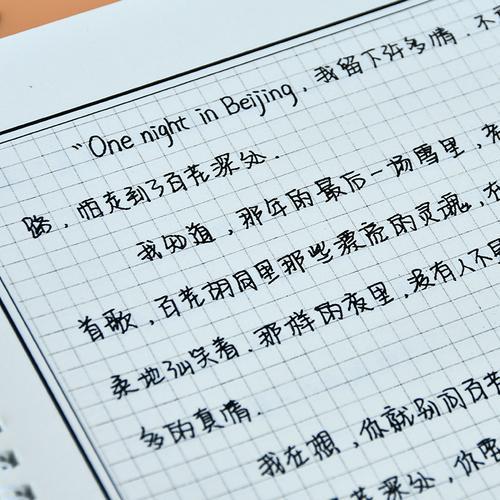 “One night in Beijing，我留下许多情．不
路，怕走到了百花深处．
我知道，那年的最后一场雪里，
首歌，百花胡同里那些漂亮的灵魂，在
柔地微笑着．那样的夜里，没有人不
多的真情．
我在想，你就别问百花
花深处，你要